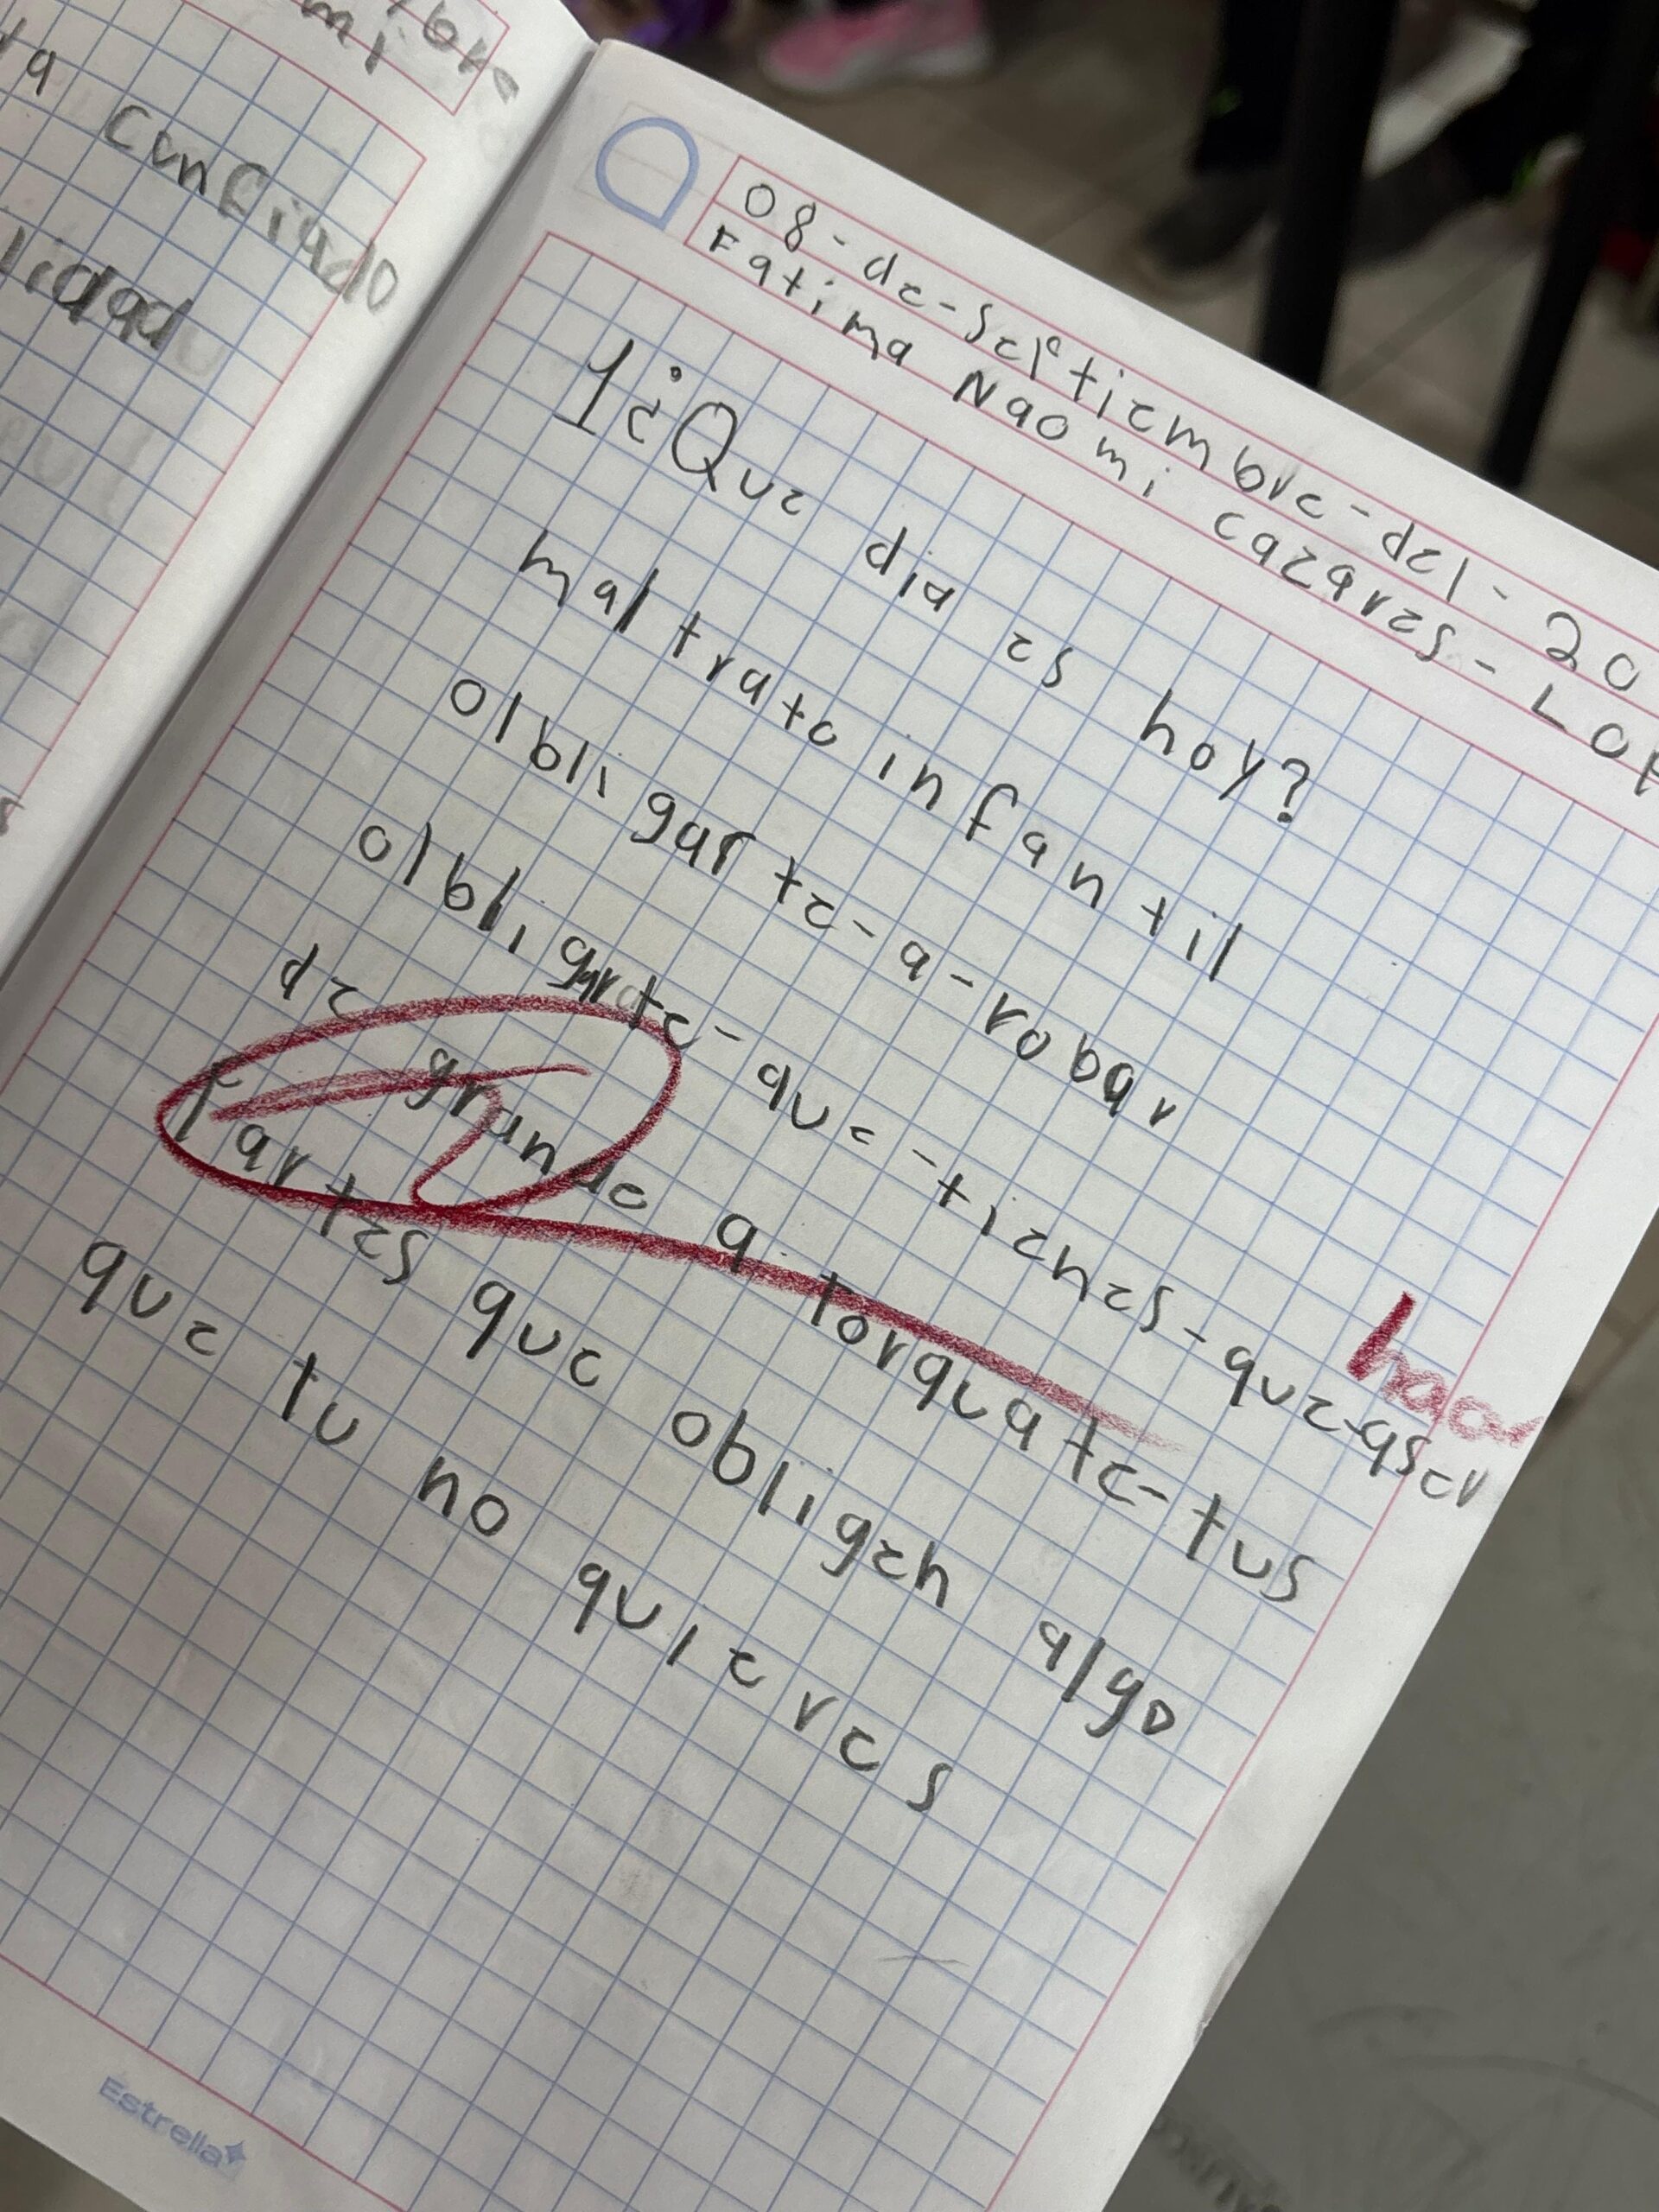 confiado
08-de-septiembre-del-20
Fatima Naomi Cazares-Lop
1¿Que dia es hoy?
maltrato infantil
olbligarte-a-robar
olbligarte-que-tienes-que-aser
hacer
de grande a torquate-tus
partes que obligen algo
que tu no quieres
Estrella